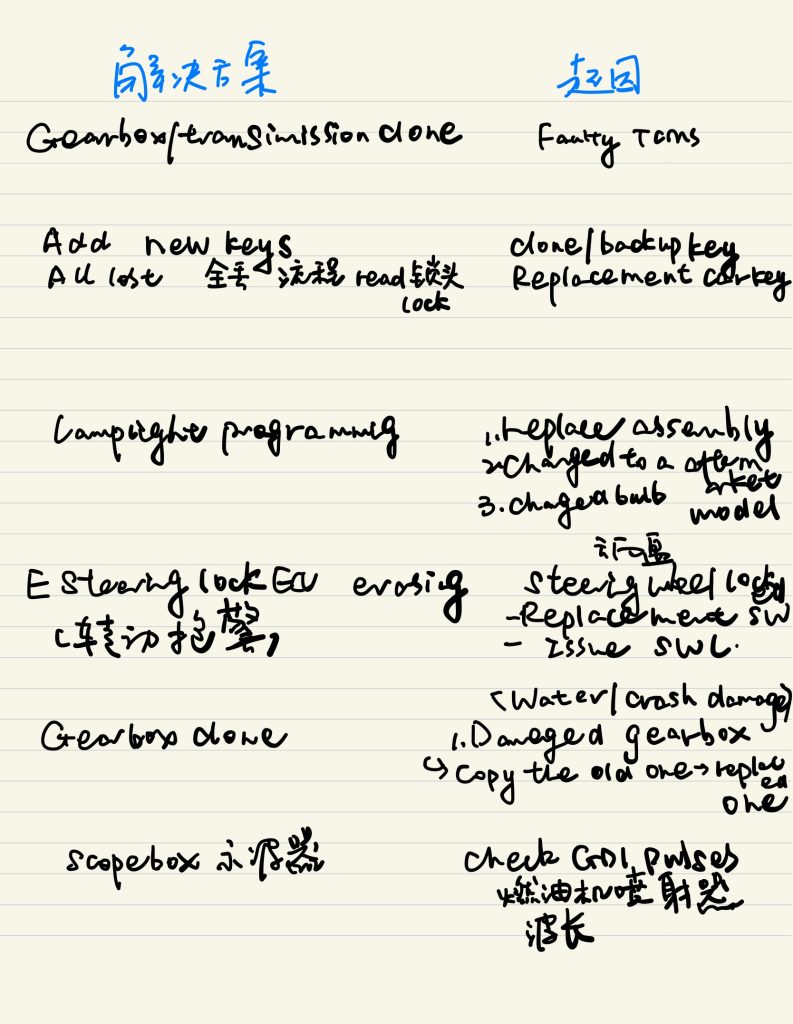 解决方案 起因
Gearbox/transimission clone Faulty TCMs
Add new keys clone/backup key
All lost 全丢流程 read锁头 Replacement car key
lock
Lamplight programmig 1. replace assembly
2. Changed to a afterm
arket
3. changed bulb model
方向盘
E Steering lock ECU erasing Steering weel lock
(转动抱警) - Replacement SW
- Issue SWL.
(Water/crash damage)
Gearbox clone 1. Damaged gearbox
↳ Copy the old one → replac
ed
one
scopebox 示波器 check GDI pulses
燃油机喷射器
波长